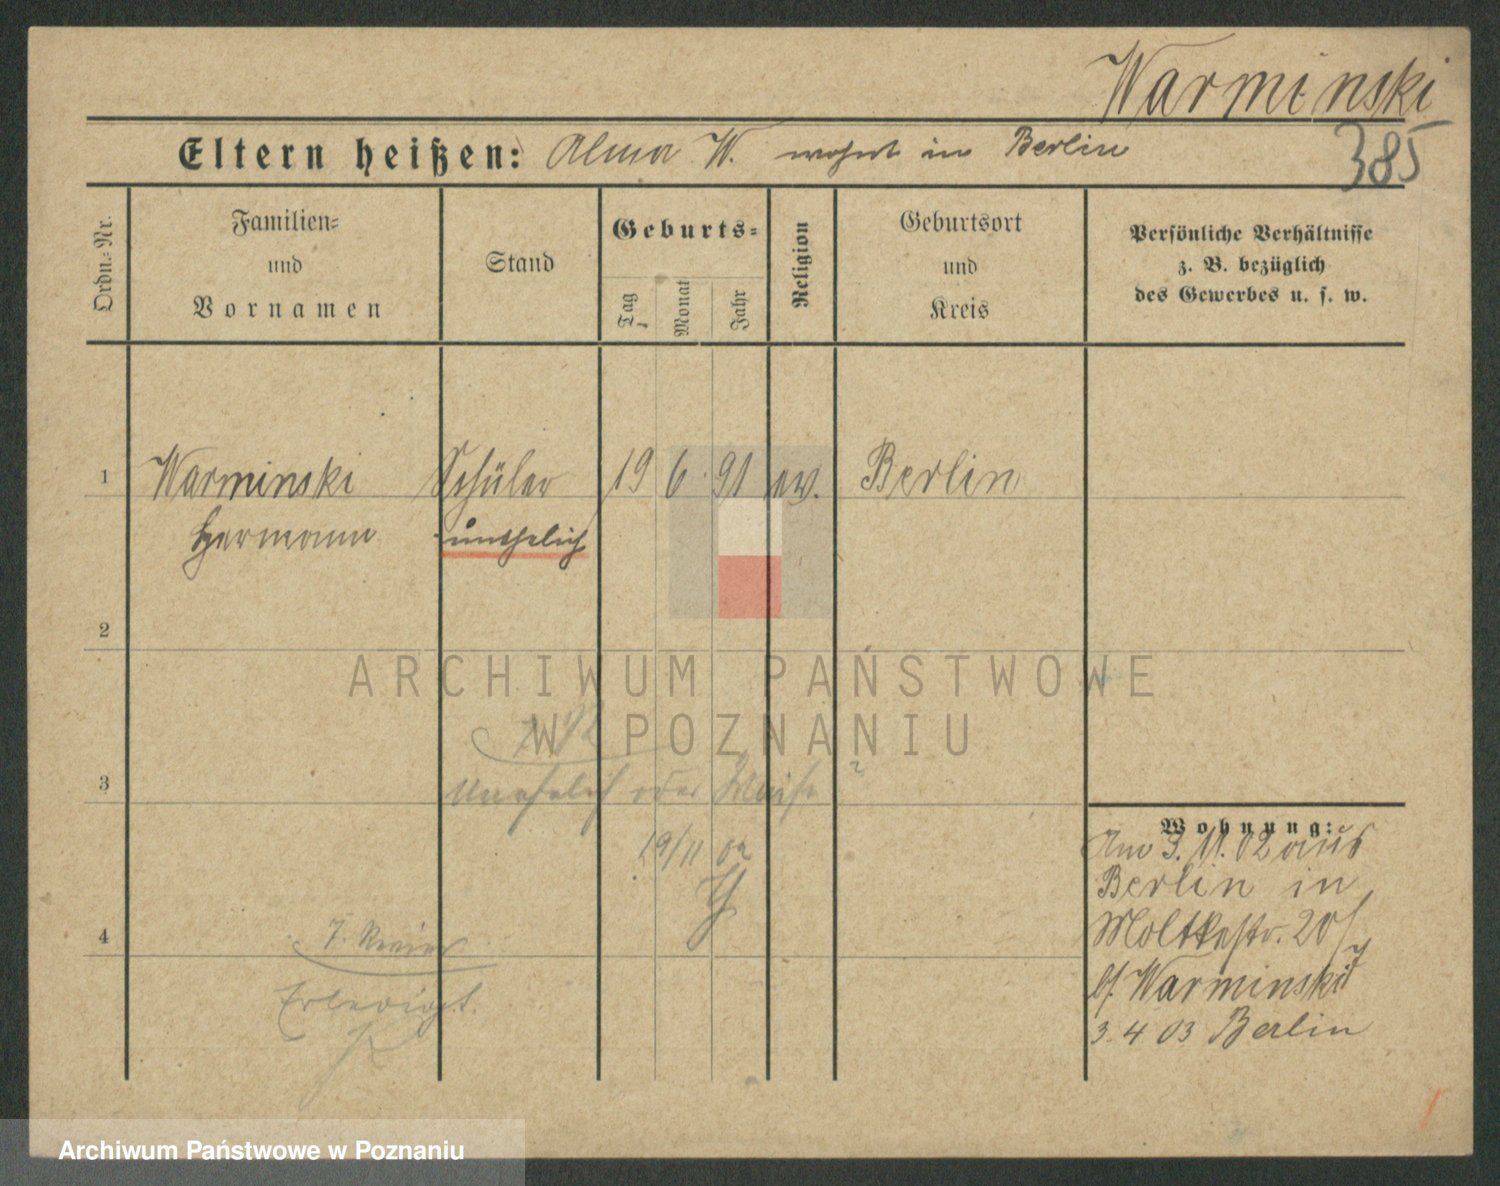 Warminski
385
Eltern heißen: Alma W. wohnt in Berlin
Ordn.-Nr.
Familien-
und
Vornamen
Stand
Geburts-
Tag
Monat
Jahr
Religion
Geburtsort
und
Kreis
Persönliche Verhältnisse
z. B. bezüglich
des Gewerbes u. s. w.
1 Warminski Schüler 19 6. 91 ev. Berlin
Hermann unehelich
2
ARCHIWUM PAŃSTWOWE
W POZNANIU
Unehelich oder Waise?
3
19/11 02
4
7. Revier
Erledigt.
Wohnung:
Am 3. 11. 02 aus
Berlin in
Moltkestr. 20
bei Warminski
3. 4 03 Berlin
Archiwum Państwowe w Poznaniu